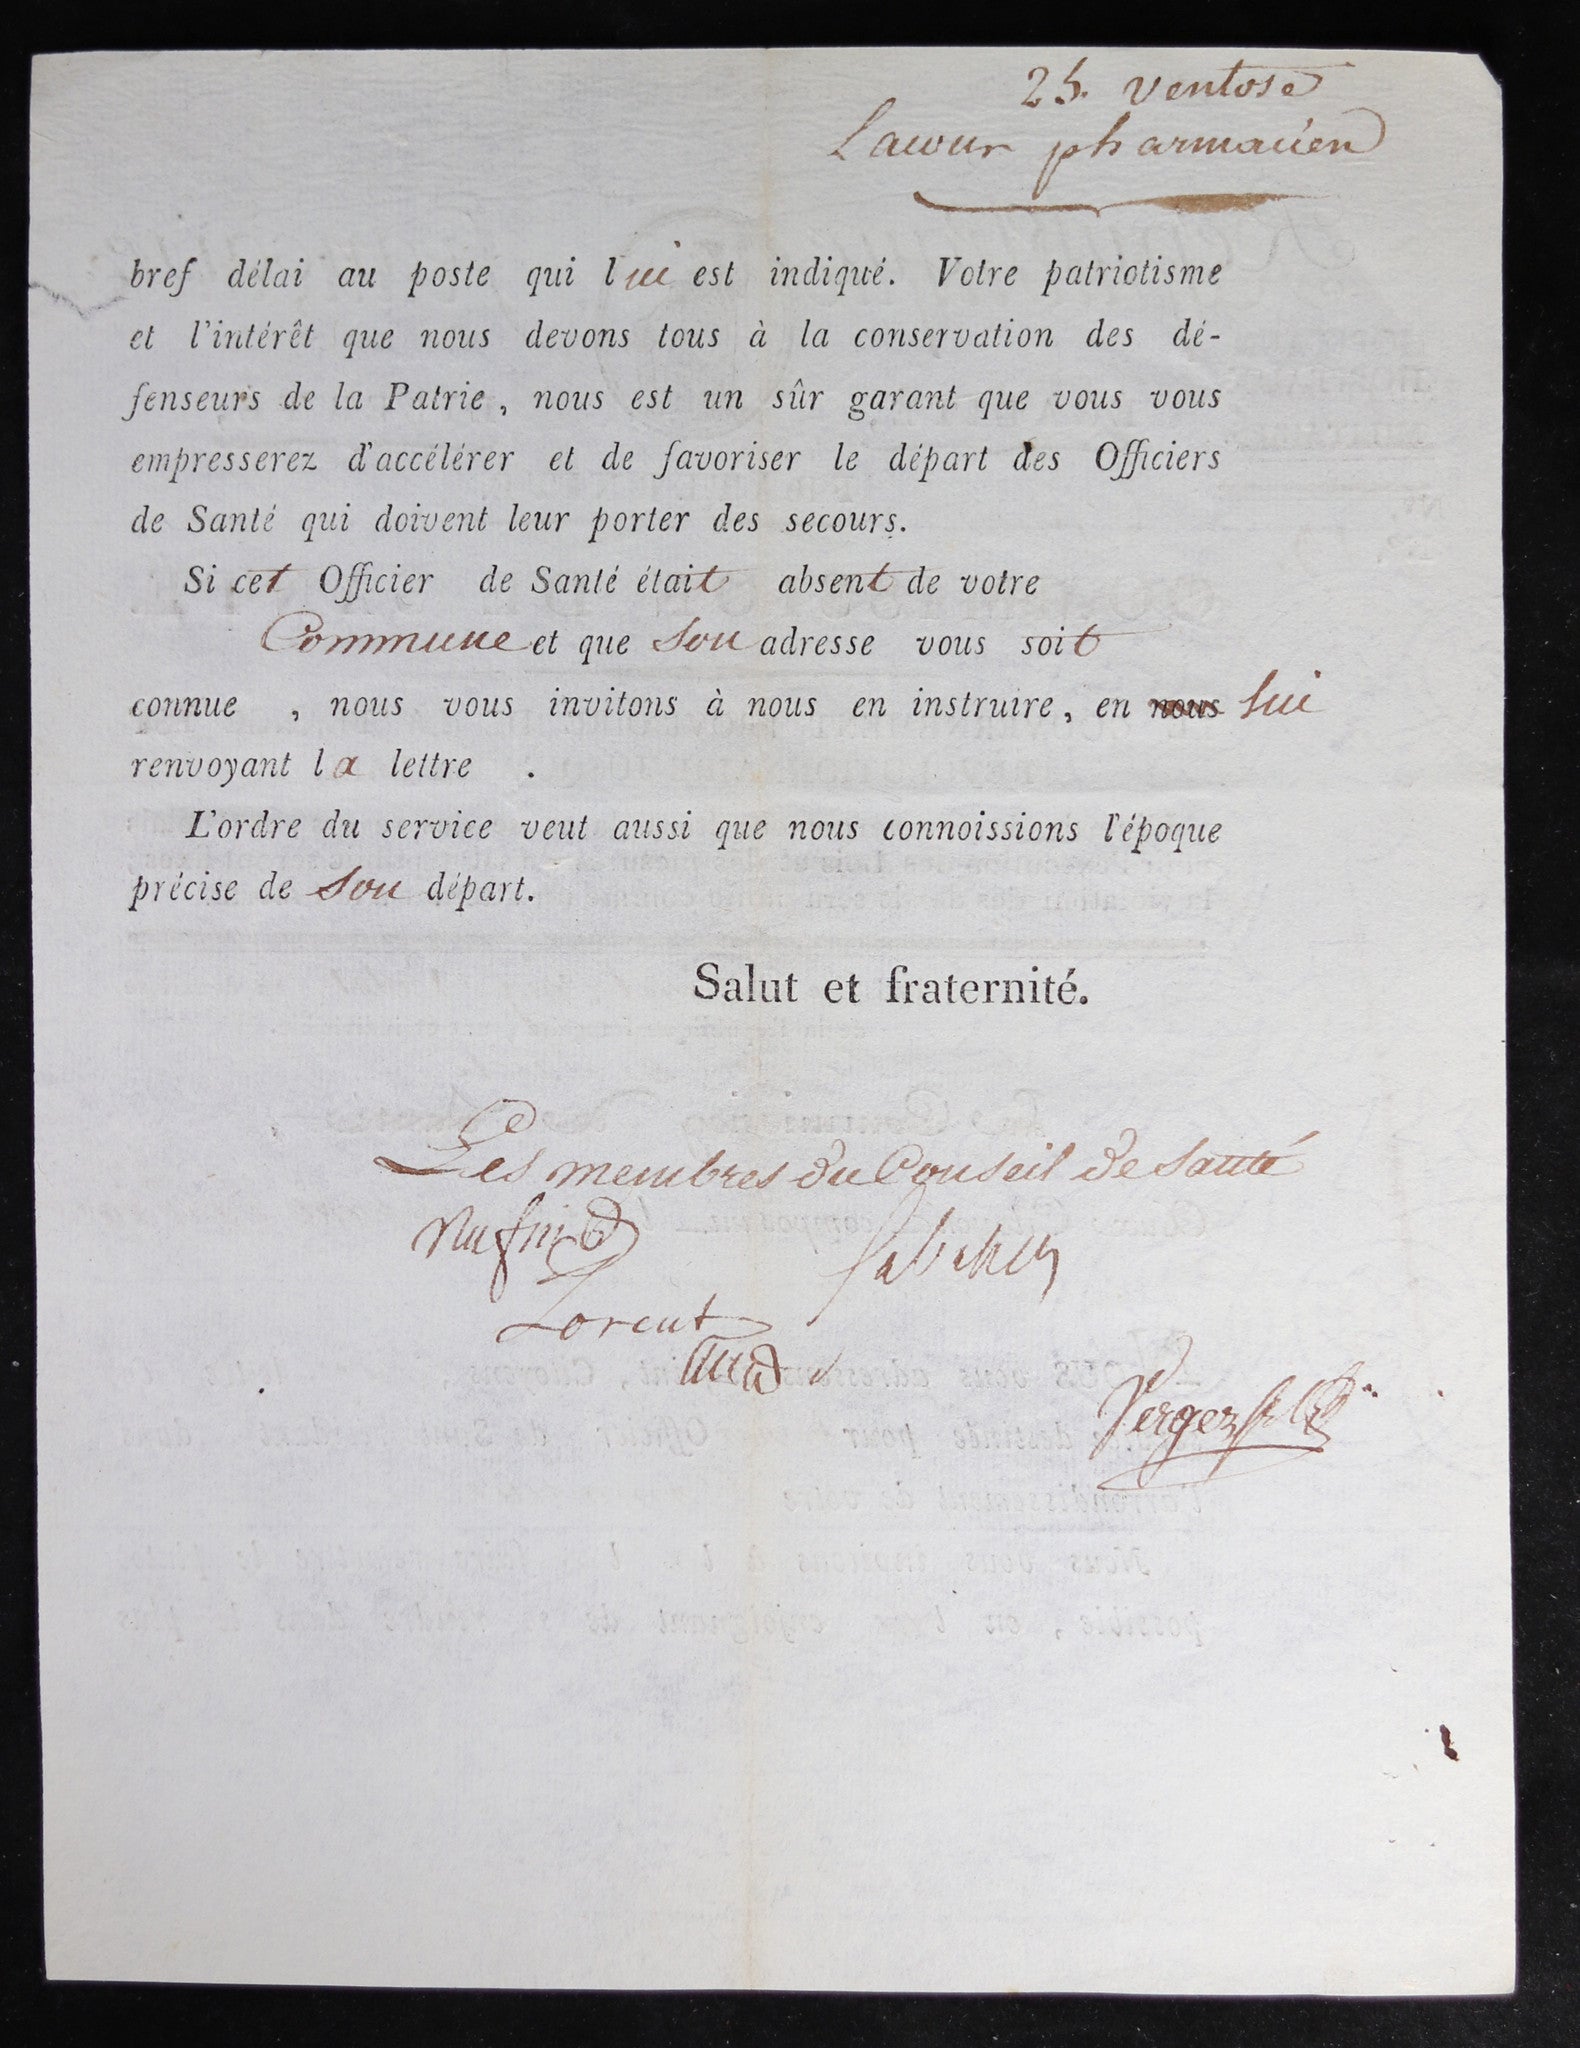 25. ventose
Lacour pharmacien
bref délai au poste qui lui est indiqué. Votre patriotisme
et l'intérêt que nous devons tous à la conservation des dé-
fenseurs de la Patrie, nous est un sûr garant que vous vous
empresserez d'accélérer et de favoriser le départ des Officiers
de Santé qui doivent leur porter des secours.
Si cet Officier de Santé était absent de votre
Commune et que son adresse vous soit
connue , nous vous invitons à nous en instruire, en nous lui
renvoyant la lettre .
L'ordre du service veut aussi que nous connoissions l'époque
précise de son départ.
Salut et fraternité.
Les membres du Conseil de santé
Lorent
Verger